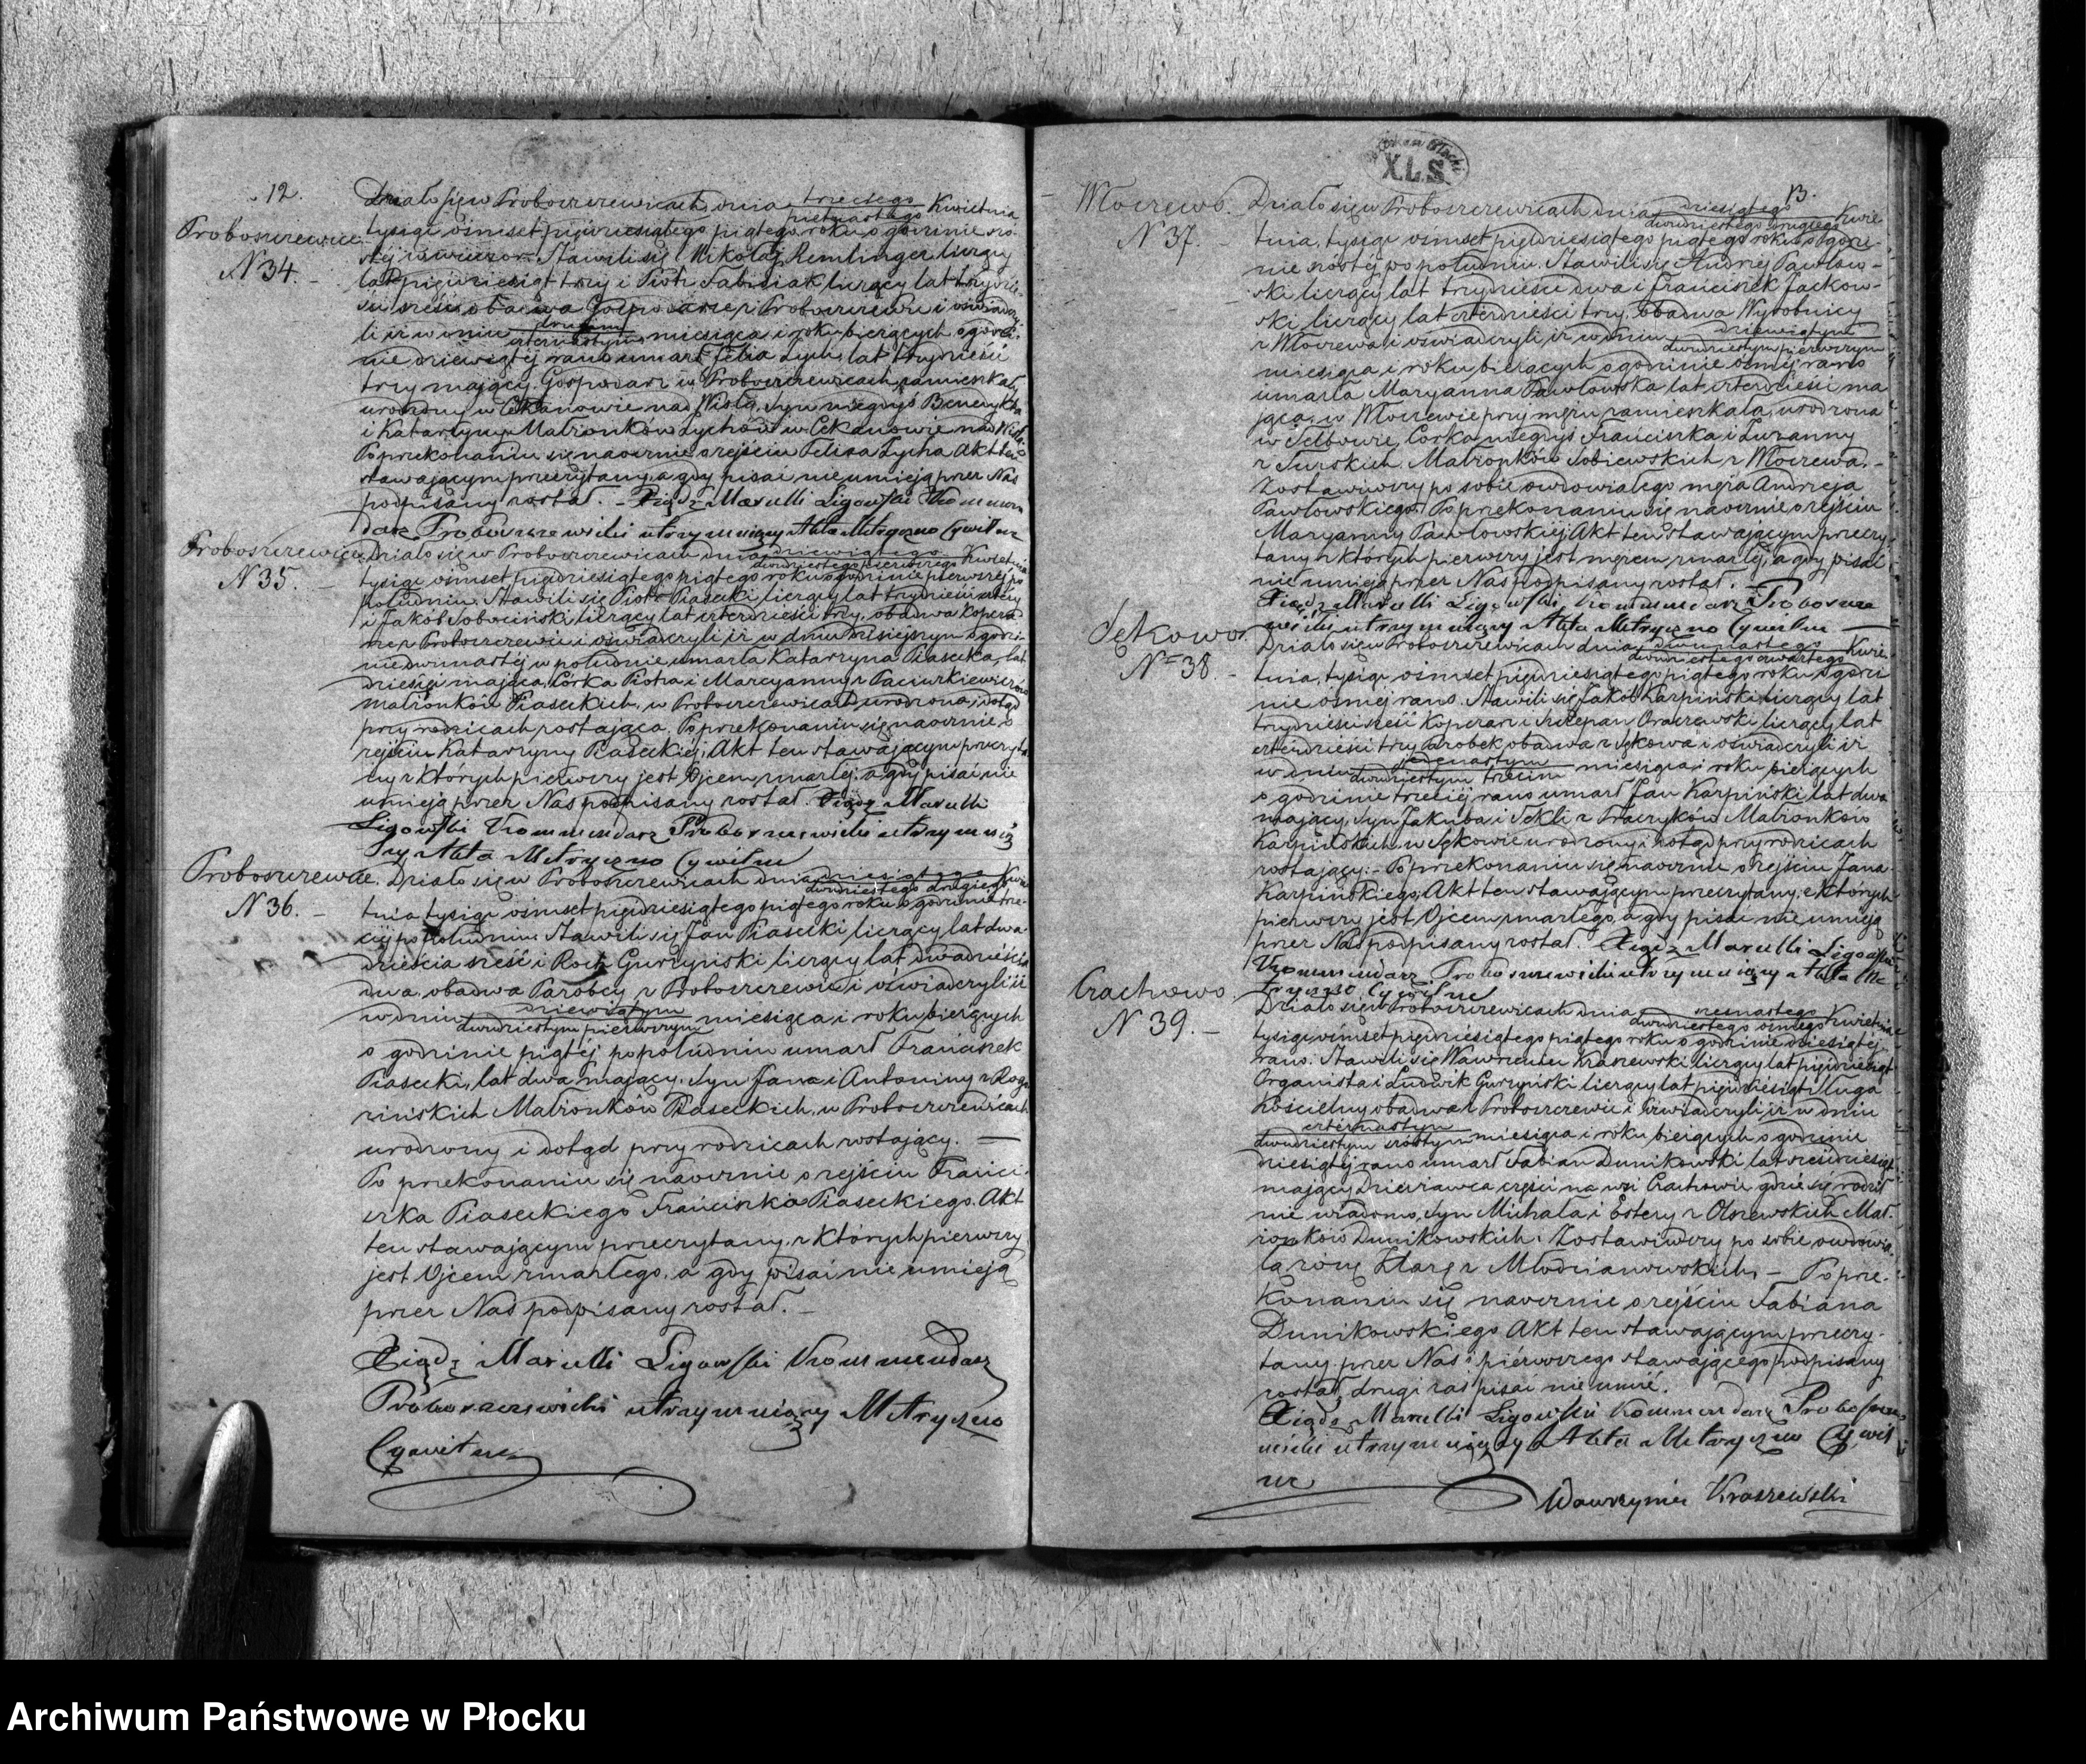 12.
Proboszczewice
N 34.
Działo się w Proboszczewicach dnia trzeciego / piętnastego Kwietnia
tysiąc ośmset pięćdziesiątego piątego roku o godzinie szó-
stej wieczór. Stawili się Mikołaj Remlinger liczący
lat pięćdziesiąt trzy i Piotr Fabisiak liczący lat trzydzie-
ści sześć obadwa Gospodarze z Proboszczewic i oświadczy-
li iż w dniu drugim / czternastym miesiąca i roku bieżących o godzi-
nie dziewiątej rano umarł Felix Zych, lat trzydzieści
trzy mający, Gospodarz w Proboszczewicach zamieszkały
urodzony w Cekanowie nad Wisłą, Syn niegdyś Benedykta
i Katarzyny Małżonków Zychów w Cekanowie nad Wisłą
Po przekonaniu się naocznie o zejściu Felixa Zycha Akt ten
stawającym przeczytany, a gdy pisać nie umieją przez Nas
podpisany został. – Xiądz Marcelli Ligowski Kommen
darz Proboszczewicki utrzymujący Akta Metryczno Cywilne
Proboszczewice
N 35.
Działo się w Proboszczewicach dnia dziewiątego / dwudziestego pierwszego Kwietnia
tysiąc ośmset pięćdziesiątego piątego roku o godzinie pierwszej po
południu. Stawili się Piotr Piasecki liczący lat trzydzieści cztery
i Jakób Sobociński liczący lat czterdzieści trzy, obadwa Kopera
rze z Proboszczewic i oświadczyli iż w dniu dzisiejszym o godzi-
nie dwunastej w południe, umarła Katarzyna Piasecka, lat
dziesięć mająca, Córka Piotra i Maryanny z Paciurkiewiczów
małżonków Piaseckich, w Proboszczewicach urodzona, dotąd
przy rodzicach zostająca. Po przekonaniu się naocznie o
zejściu Katarzyny Piaseckiej, Akt ten stawającym przeczyta
ny z których pierwszy jest Ojcem zmarłej, a gdy pisać nie
umieją przez Nas podpisany został. Xiądz Marcelli
Ligowski Kommendarz Proboszczewicki utrzymują
cy Akta Metryczno Cywilne
Proboszczewice.
N 36. –
Działo się w Proboszczewicach dnia dziesiątego / dwudziestego drugiego Kwie
tnia tysiąc ośmset pięćdziesiątego piątego roku o godzinie trze-
ciej po południu. Stawili się Jan Piasecki liczący lat dwa-
dzieścia sześć i Roch Gurzyński liczący lat dwadzieścia
dwa, obadwa Parobcy z Proboszczewic i oświadczyli iż
w dniu dziewiątym / dwudziestym pierwszym miesiąca i roku bieżących
o godzinie piątej po południu umarł Franciszek
Piasecki, lat dwa mający, Syn Jana i Antoniny z Rogo
zińskich Małżonków Piaseckich, w Proboszczewicach
urodzony i dotąd przy rodzicach zostający. –
Po przekonaniu się naocznie o zejściu Franci-
szka Piaseckiego Franciszka Piaseckiego. Akt
ten stawającym przeczytany, z których pierwszy
jest Ojcem zmarłego, a gdy pisać nie umieją
przez Nas podpisany został. –
Xiądz Marcelli Ligowski Kommendarz
Proboszczewicki utrzymujący Metryczno
Cywilne
Płocki
X.L.S
13.
Mocrzewo.
N 37. –
Działo się w Proboszczewicach dnia dziesiątego / dwudziestego drugiego Kwie
tnia, tysiąc ośmset pięćdziesiątego piątego roku o godzi-
nie szóstej po południu. Stawili się Andrzej Pawłow-
ski liczący lat trzydzieści dwa i Franciszek Jackow-
ski liczący lat czterdzieści trzy, obadwa Wyrobnicy
z Mocrzewa i oświadczyli iż w dniu dziewiątym / dwudziestym pierwszym
miesiąca i roku bieżących o godzinie ósmej rano
umarła Maryanna Pawłowska lat czterdzieści ma
jąca, w Mocrzewie przy mężu zamieszkała, urodzona
w Selbowie, Córka niegdyś Franciszka i Zuzanny
z Turskich Małżonków Sobiewskich z Mocrzewa. –
Zostawiwszy po sobie owdowiałego męża Andrzeja
Pawłowskiego. Po przekonaniu się naocznie o zejściu
Maryanny Pawłowskiej Akt ten stawającym przeczy-
tany z których pierwszy jest mężem zmarłej, a gdy pisać
nie umieją przez Nas podpisany został. –
Xiądz Marcelli Ligowski Kommendarz Proboszcze
wicki utrzymujący Akta Metryczno Cywilne –
Sękowo.
N 38. –
Działo się w Proboszczewicach dnia dwunastego / dwudziestego czwartego Kwie
tnia, tysiąc ośmset pięćdziesiątego piątego roku o godzi
nie ósmej rano. Stawili się Jakób Karpiński liczący lat
trzydzieści sześć Koperarz i Szczepan Oraczewski liczący lat
czterdzieści trzy Parobek, obadwa z Sękowa i oświadczyli iż
w dniu jedenastym / dwudziestym trzecim miesiąca i roku bieżących
o godzinie trzeciej rano umarł Jan Karpiński, lat dwa
mający, Syn Jakuba i Tekli z Tkaczyków Małżonków
Karpińskich, w Sękowie urodzony i dotąd przy rodzicach
zostający. – Po przekonaniu się naocznie o zejściu Jana
Karpińskiego, Akt ten stawającym przeczytany, z których
pierwszy jest Ojcem zmarłego, a gdy pisać nie umieją
przez Nas podpisany został. Xiądz Marcelli Ligowski
Kommendarz Proboszczewicki utrzymujący Akta Me
tryczno Cywilne
Crachowo.
N 39. –
Działo się w Proboszczewicach dnia szesnastego / dwudziestego ósmego Kwietnia
tysiąc ośmset pięćdziesiątego piątego roku o godzinie dziesiątej
rano. Stawili się Wawrzeniec Kraszewski liczący lat pięćdziesiąt
Organista i Ludwik Gurzyński liczący lat pięćdziesiąt Sługa
Kościelny obadwa z Proboszczewic i oświadczyli iż w dniu
czternastym / dwudziestym szóstym miesiąca i roku bieżących o godzinie
dziesiątej rano umarł Fabian Dunikowski, lat sześćdziesiąt
mający Dzierżawca części na wsi Crachowie gdzie się rodził
nie wiadomo, Syn Michała i Estery z Olszewskich Mał-
żonków Dunikowskich. Zostawiwszy po sobie owdowia-
łą żonę Klarę z Młodzianowskich. – Po prze-
konaniu się naocznie o zejściu Fabiana
Dunikowskiego Akt ten stawającym przeczy-
tany przez Nas i pierwszego stawającego podpisany
został, drugi zaś pisać nie umié.
Xiądz Marcelli Ligowski Kommendarz Proboszcze
wicki utrzymujący Akta Metryczno Cywil
ne
Wawrzyniec Kraszewski
Archiwum Państwowe w Płocku